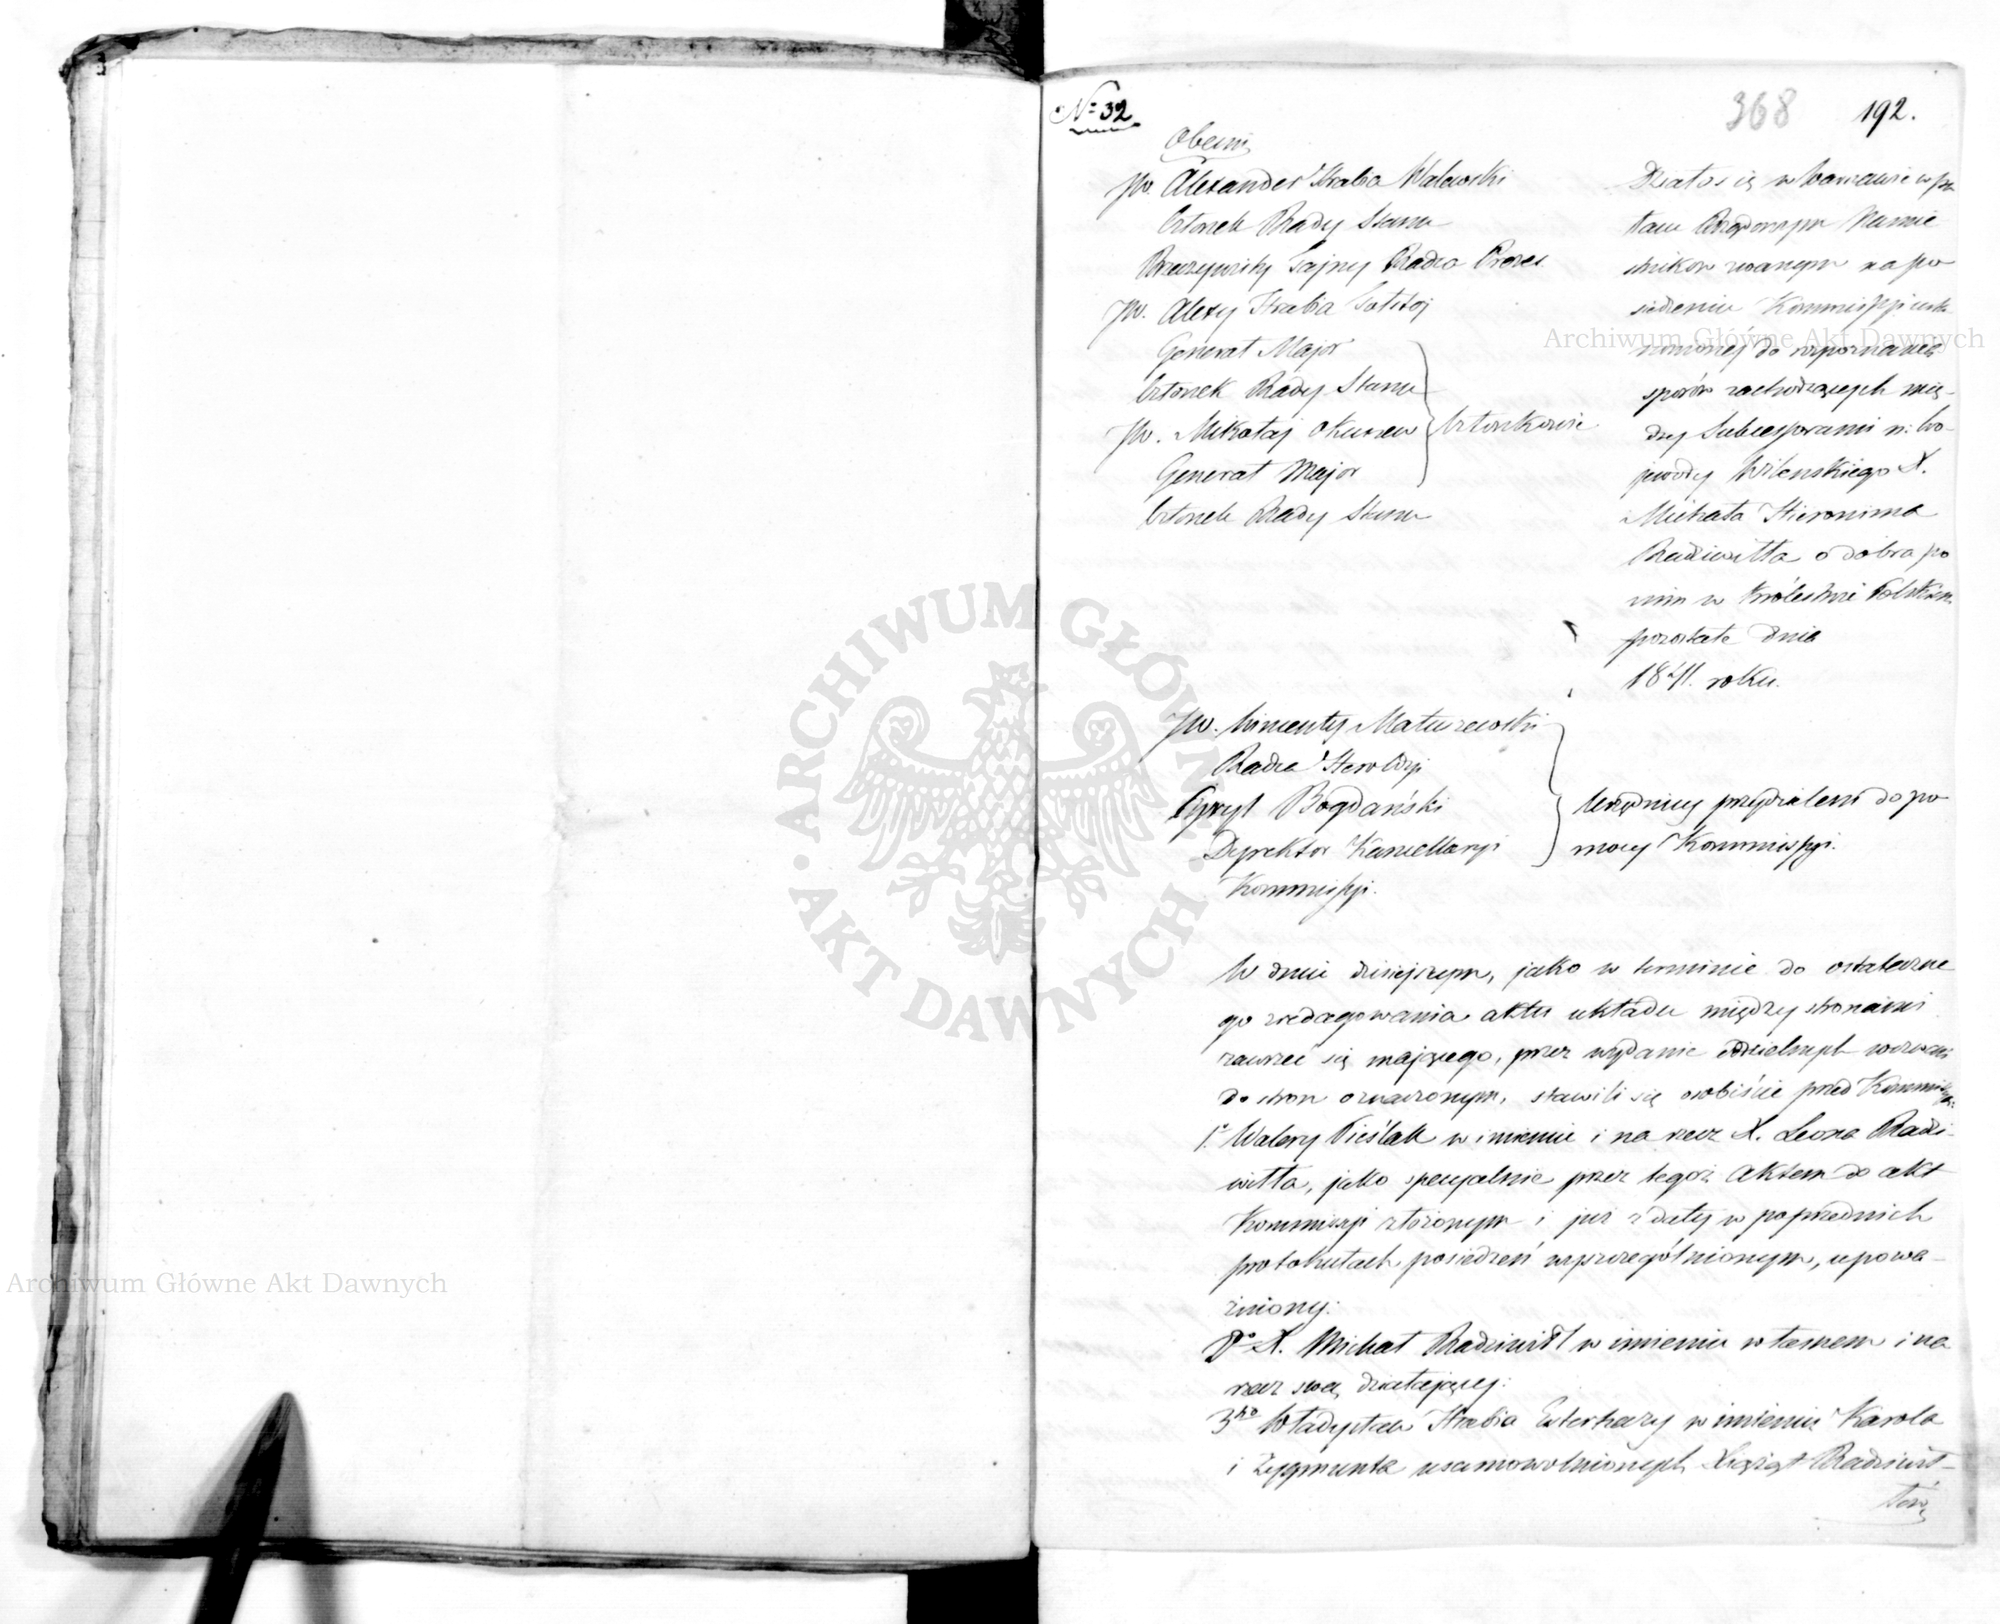 № 32
368 192.
Obecni
JW. Alexander Hrabia Walewski
Członek Rady Stanu
Rzeczywisty Tajny Radca Prezes
JW. Alexy Hrabia Tołstoj
Generał Major
Członek Rady Stanu
JW. Mikołaj Okunew Członkowie
Generał Major
Członek Rady Stanu
Działo się w Warszawie w pa
łacu Rządowym Namie
stnikow zwanym na po
siedzeniu Kommissyi usta
nowionej do rozpoznania
sporów zachodzących mię-
dzy Sukcessorami n: Wo-
jewody Wileńskiego X.
Michała Hieronima
Radziwiłła o dobra po
nim w Królestwie Polskiem
pozostałe dnia
1841. roku.
JW. Wincenty Matuszewski
Radca Heroldyi
Cyryl Bogdański
Dyrektor Kancellaryi
Kommissyi.
Urzędnicy przydzieleni do po
mocy Kommissyi.
W dniu dzisiejszym, jako w terminie do ostateczne
go zredagowania aktu układu między stronami
zawrzeć się mającego, przez wydanie oddzielnych wezwań
do stron oznaczonym, stawili się osobiście przed Kommissyą:
1º Walery Pieślak w imieniu i na rzecz X. Leona Radzi-
wiłła, jako specyalnie przez tegoż aktem do akt
Kommissyi złożonym i już z daty w poprzednich
protokułach posiedzeń wyszczególnionym, upowa-
żniony:
2º X. Michał Radziwiłł w imieniu własnem i na
rzecz swą działający:
3tio Władysław Hrabia Esterhazy w imieniu Karola
i Zygmunta usamowolnionych Xiążąt Radziwił-
łów,
Archiwum Główne Akt Dawnych
Archiwum Główne Akt Dawnych
ARCHIWUM GŁÓWNE
AKT DAWNYCH